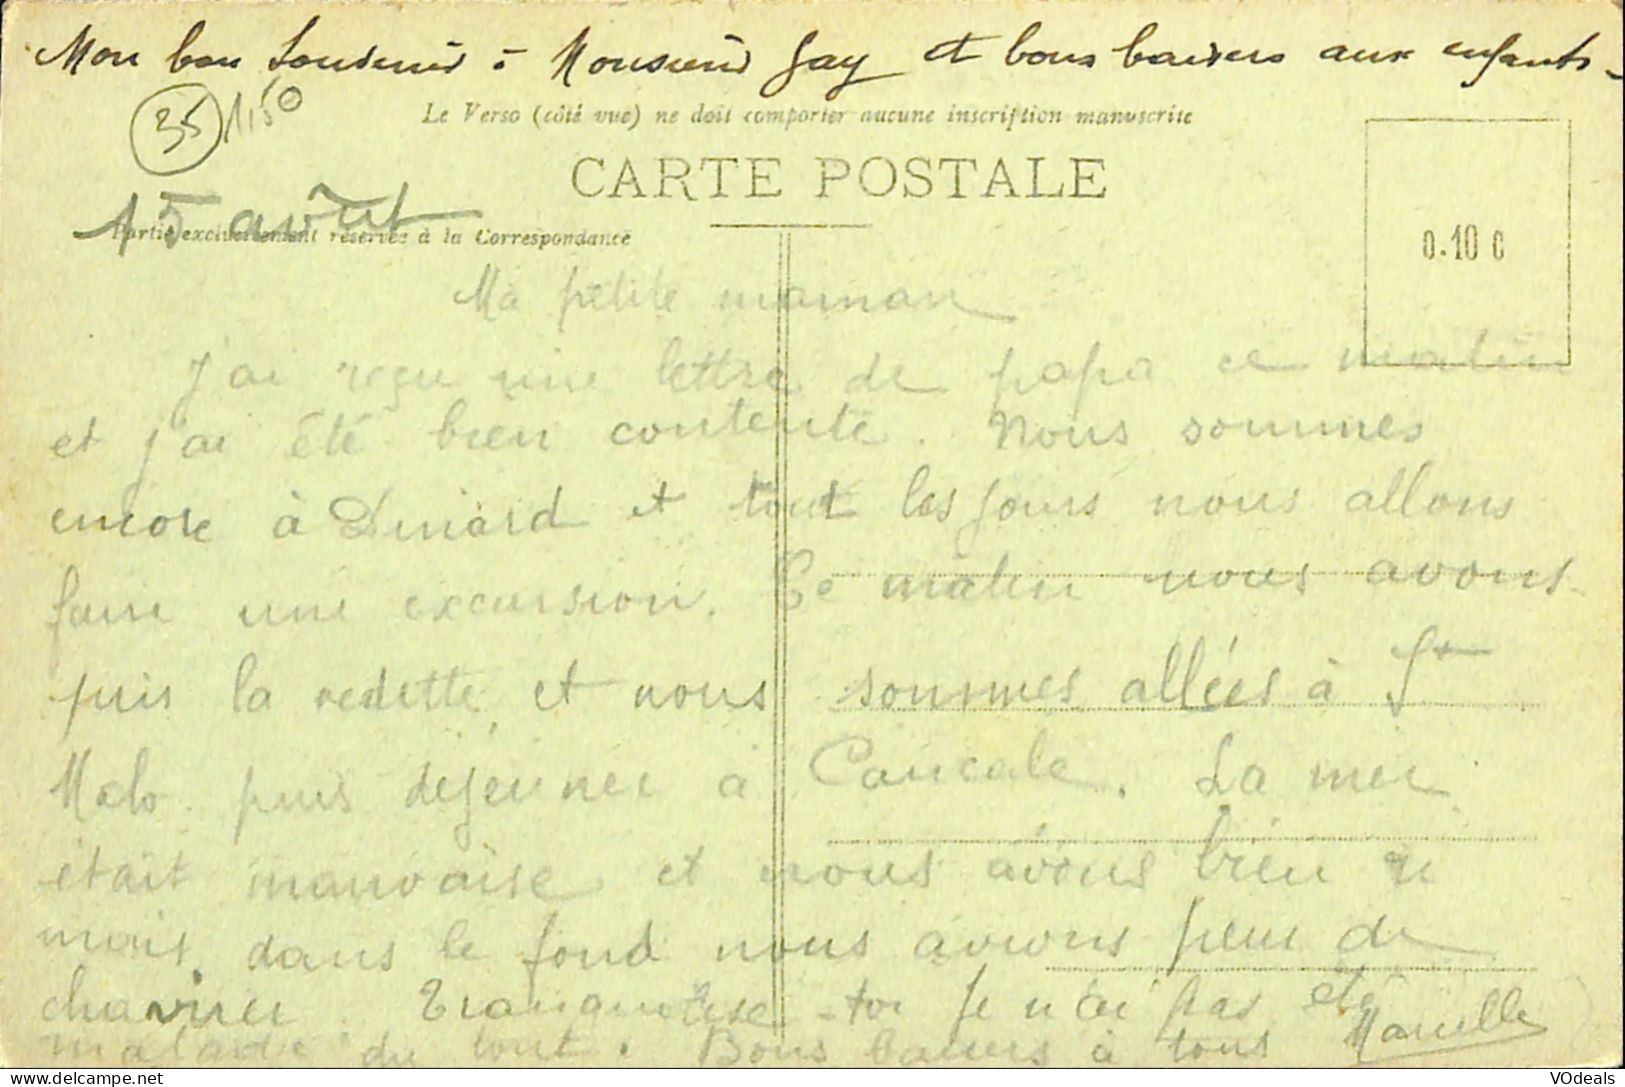 Mon bon Souvenir à Monsieur Gay et bons baisers aux enfants -
35
1,50
Le Verso (côté vue) ne doit comporter aucune inscription manuscrite
CARTE POSTALE
15 août
Partie exclusivement réservée à la Correspondance
0.10 C
Ma petite maman
J'ai reçu une lettre de papa ce matin
et j'ai été bien contente. Nous sommes
encore à Dinard et tout les jours nous allons
faire une excursion. Ce matin nous avons
pris la vedette et nous sommes allées à St
Malo puis déjeuner à Cancale. La mer
était mauvaise et nous avons bien ri
mais, dans le fond nous avions peur de
chavirer. Tranquilise-toi je n'ai pas été
malade du tout. Bons baisers à tous Marcelle
VOdeals